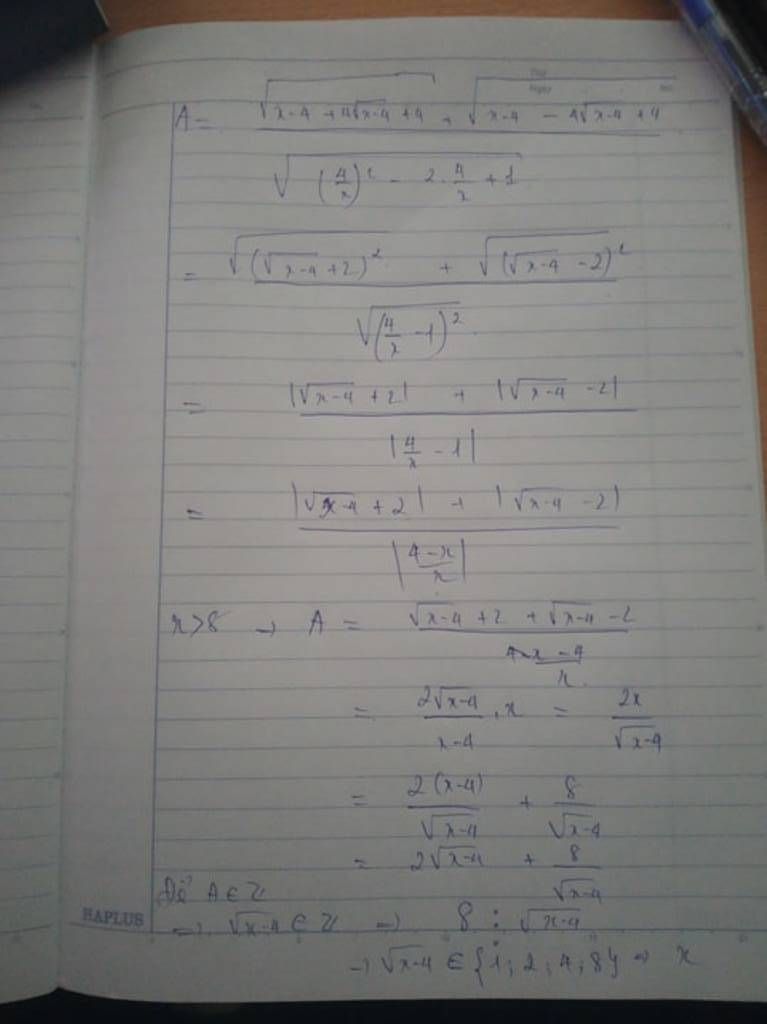 A = (√(x-4 + 4√(x-4) + 4) + √(x-4 - 4√(x-4) + 4)) / √((4/x)² - 2.4/x + 1)
= (√((√(x-4) + 2)²) + √((√(x-4) - 2)²)) / √((4/x - 1)²)
= (|√(x-4) + 2| + |√(x-4) - 2|) / |4/x - 1|
= (|√(x-4) + 2| + |√(x-4) - 2|) / |(4-x)/x|
x>8 → A = (√(x-4) + 2 + √(x-4) - 2) / ((x-4)/x)
= 2√(x-4)/(x-4) . x = 2x/√(x-4)
= 2(x-4)/√(x-4) + 8/√(x-4)
= 2√(x-4) + 8/√(x-4)
Để A ∈ Z
=> √(x-4) ∈ Z => 8 ⋮ √(x-4)
→ √(x-4) ∈ {1; 2; 4; 8} => x
HAPLUS